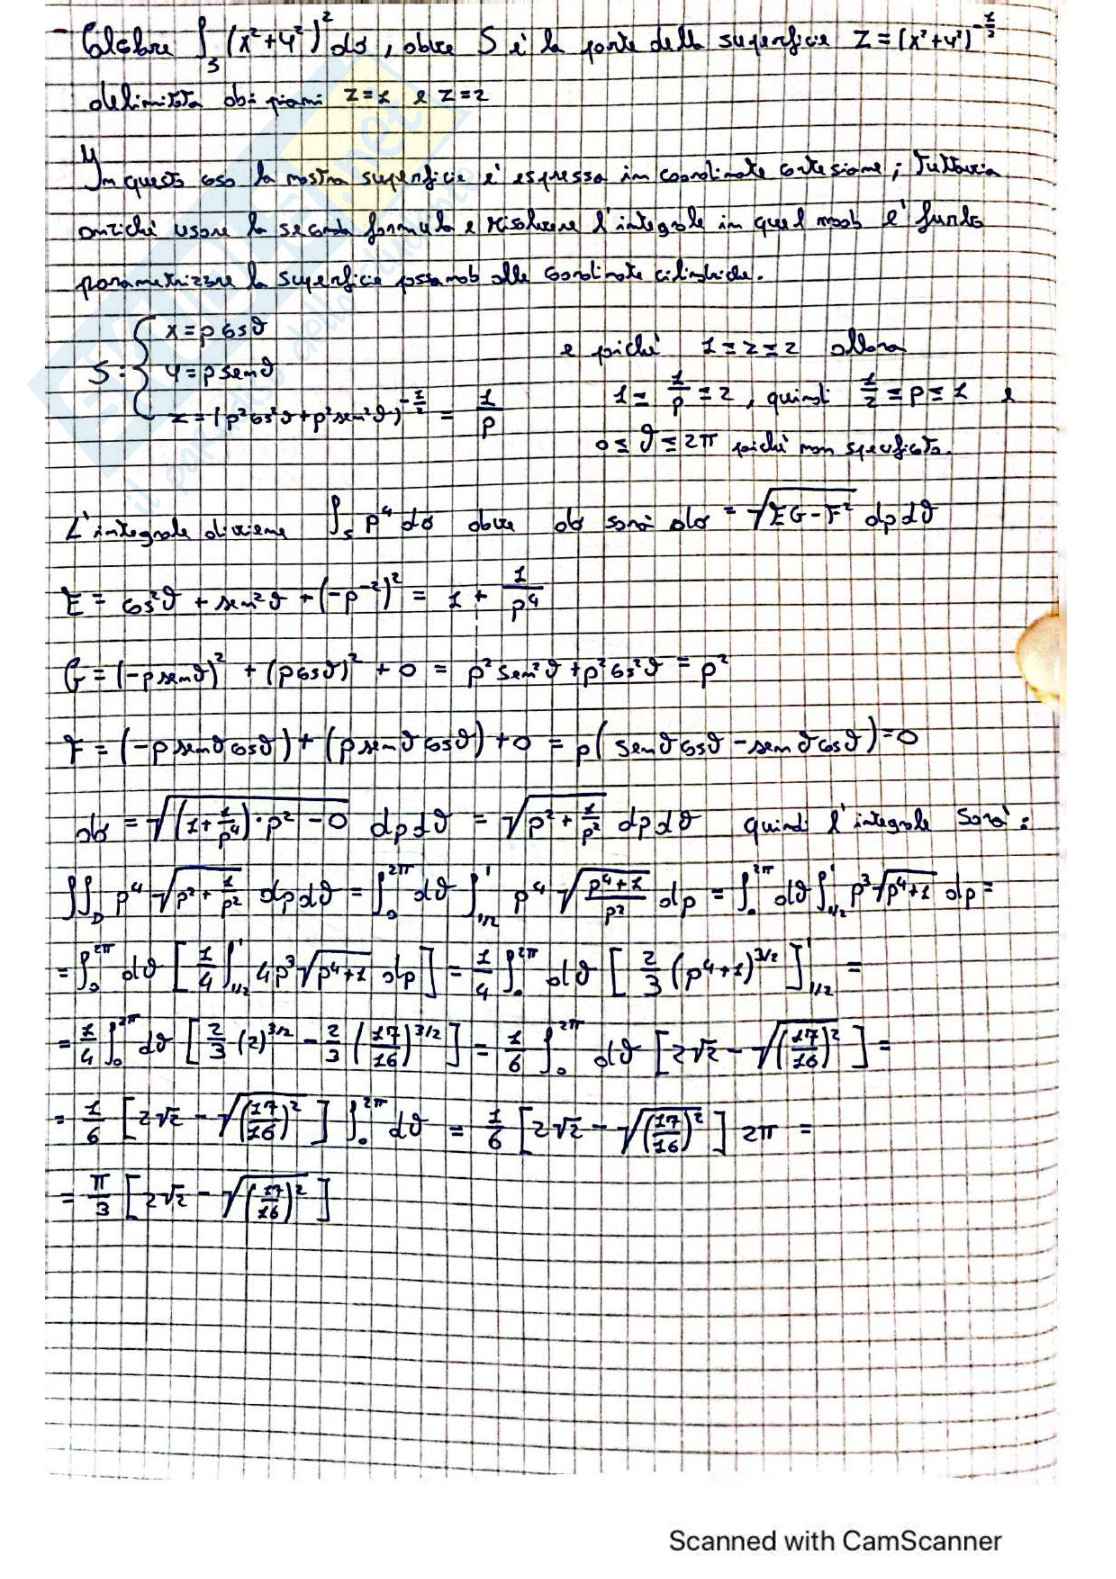 - Calcolare ∫_S (x²+y²)² dσ, dove S è la parte della superficie z = (x²+y²)^(-1/2)
delimitata dai piani z=1 e z=2
In questo caso la nostra superficie è espressa in coordinate cartesiane; tuttavia
anziché usare la seconda formula e risolvere l'integrale in quel modo è furbo
parametrizzare la superficie passando alle coordinate cilindriche.
S: { x = ρ cosϑ
y = ρ senϑ
z = (ρ²cos²ϑ + ρ²sen²ϑ)^(-1/2) = 1/ρ
e poiché 1 ≤ z ≤ 2 allora
1 ≤ 1/ρ ≤ 2, quindi 1/2 ≤ ρ ≤ 1 e
0 ≤ ϑ ≤ 2π poiché non specificato.
L'integrale diviene ∫_S ρ⁴ dσ dove dσ sarà dσ = √(EG-F²) dρdϑ
E = cos²ϑ + sen²ϑ + (-ρ⁻²)² = 1 + 1/ρ⁴
G = (-ρ senϑ)² + (ρ cosϑ)² + 0 = ρ² sen²ϑ + ρ² cos²ϑ = ρ²
F = (-ρ senϑ cosϑ) + (ρ senϑ cosϑ) + 0 = ρ( senϑ cosϑ - senϑ cosϑ) = 0
dσ = √((1+1/ρ⁴)·ρ² - 0) dρdϑ = √(ρ² + 1/ρ²) dρdϑ quindi l'integrale sarà:
∬_D ρ⁴ √(ρ² + 1/ρ²) dρdϑ = ∫_0^2π dϑ ∫_1/2^1 ρ⁴ √((ρ⁴+1)/ρ²) dρ = ∫_0^2π dϑ ∫_1/2^1 ρ³ √(ρ⁴+1) dρ =
= ∫_0^2π dϑ [ 1/4 ∫_1/2^1 4ρ³ √(ρ⁴+1) dρ ] = 1/4 ∫_0^2π dϑ [ 2/3 (ρ⁴+1)^(3/2) ]_1/2^1 =
= 1/4 ∫_0^2π dϑ [ 2/3 (2)^(3/2) - 2/3 (17/16)^(3/2) ] = 1/6 ∫_0^2π dϑ [ 2√2 - √((17/16)²) ] =
= 1/6 [ 2√2 - √((17/16)²) ] ∫_0^2π dϑ = 1/6 [ 2√2 - √((17/16)²) ] 2π =
= π/3 [ 2√2 - √((17/16)²) ]
Scanned with CamScanner